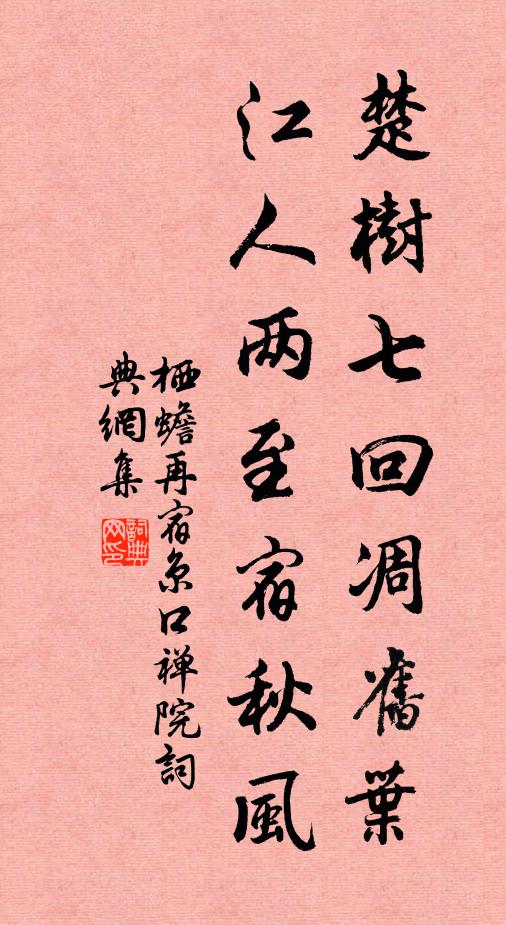 楚樹七回凋舊葉
江人两至宿秋風
栖蟾再宿京口禅院詞
典網集
詞典网印